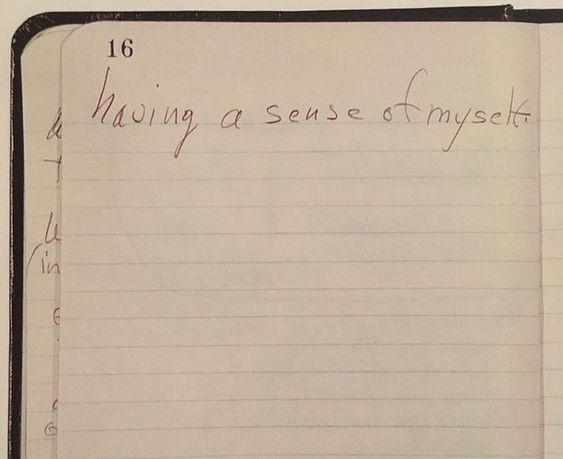 16
having a sense of myself.
(in